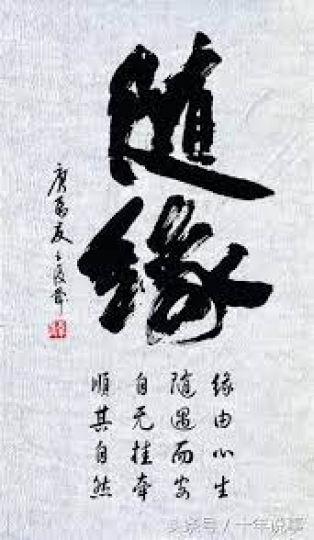 随缘
缘由心生
随遇而安
自无挂牵
順其自然
头条号 / 一年说事